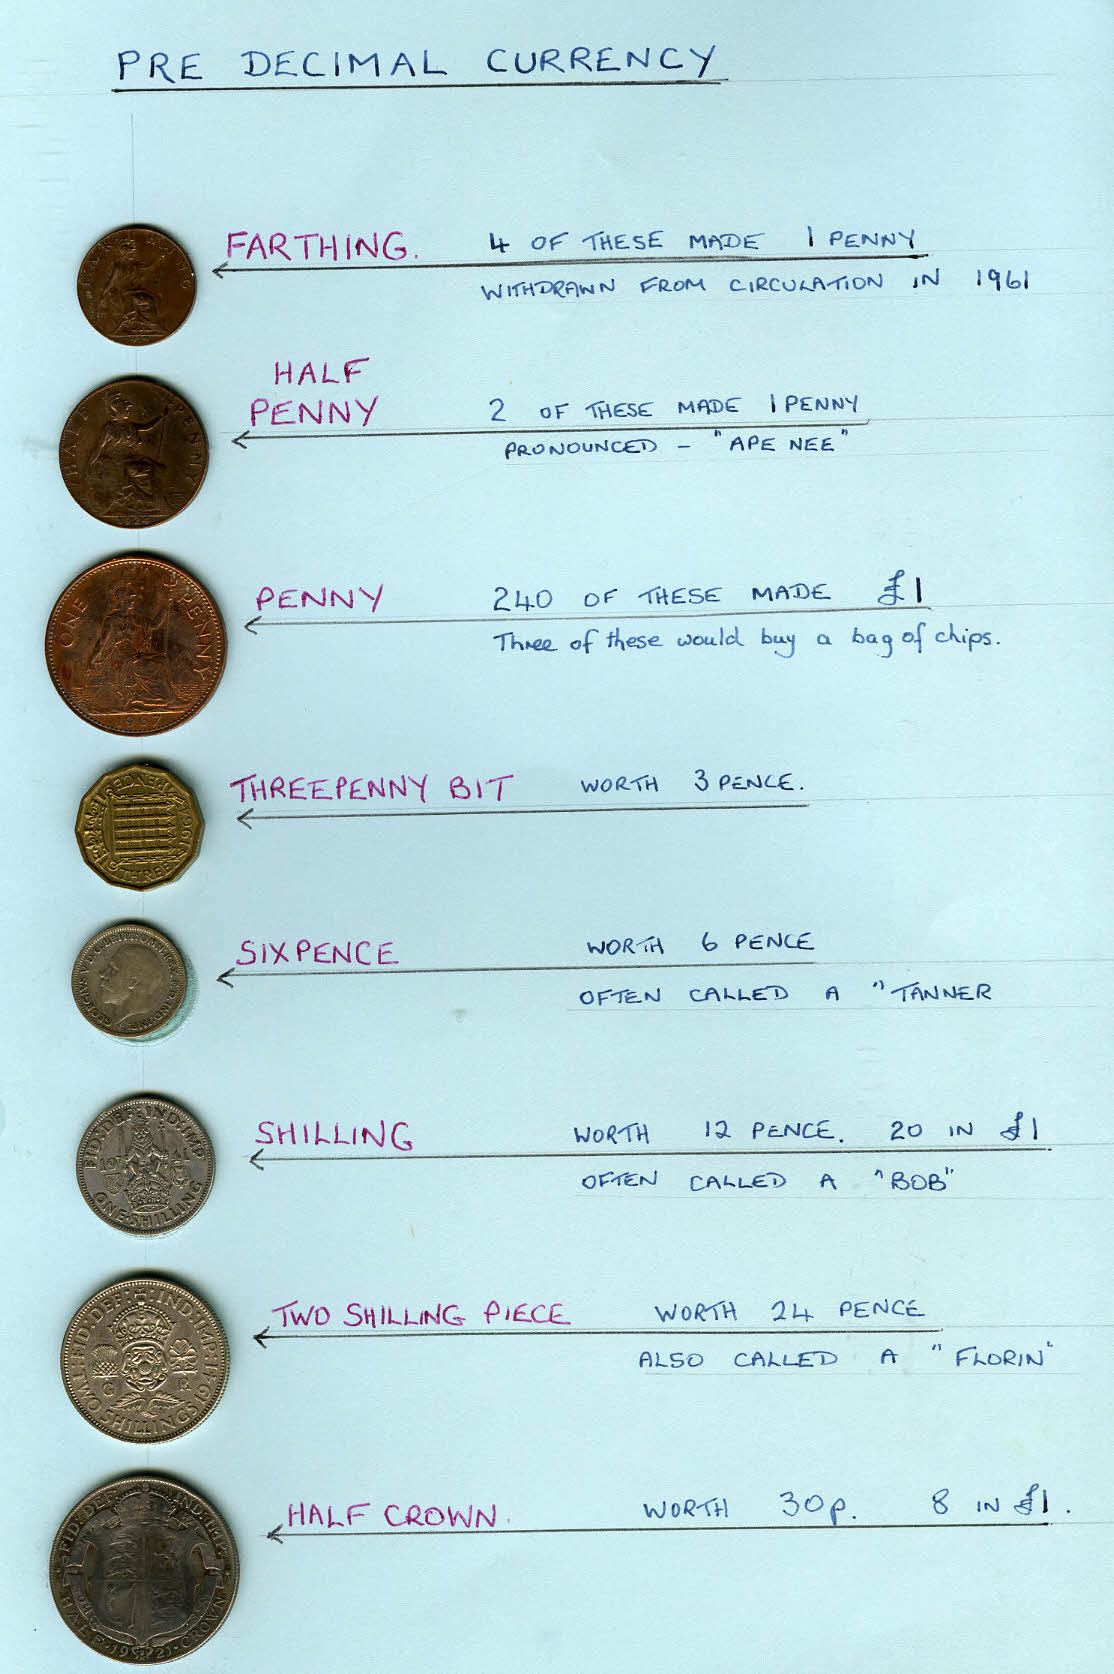 PRE DECIMAL CURRENCY
FARTHING
FARTHING. 4 OF THESE MADE 1 PENNY
WITHDRAWN FROM CIRCULATION IN 1961
HALF
PENNY 2 OF THESE MADE 1 PENNY
PRONOUNCED - "APE NEE"
HALF PENNY
ONE PENNY
1967
PENNY 240 OF THESE MADE £1
Three of these would buy a bag of chips.
THREEPENNY BIT WORTH 3 PENCE.
THREE PENCE
SIXPENCE WORTH 6 PENCE
OFTEN CALLED A "TANNER
GEORGIVS V D.G. BRITT:OMN:REX
SHILLING WORTH 12 PENCE. 20 IN £1
OFTEN CALLED A "BOB"
FID:DEF IND:IMP
1941
ONE·SHILLING
TWO SHILLING PIECE WORTH 24 PENCE
ALSO CALLED A "FLORIN"
FID:DEF IND:IMP
G R
TWO SHILLINGS
HALF CROWN. WORTH 30p. 8 IN £1.
FID:DEF IND:IMP
HALF·1921·CROWN